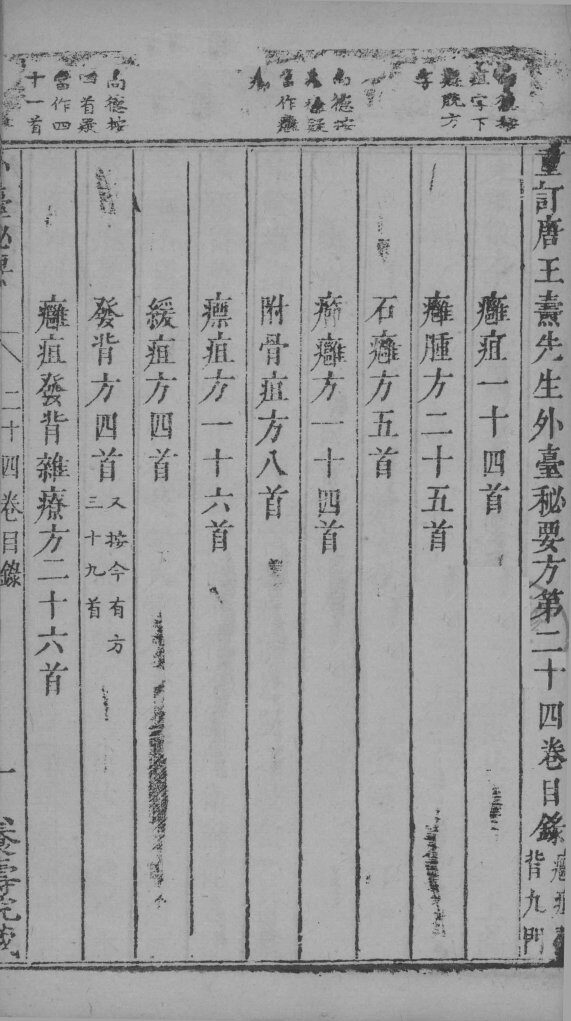 重訂唐王燾先生外臺秘要方第二十四卷目錄癰疽發背九門
癰疽一十四首
癰腫方二十五首
石癰方五首
癤癰方一十四首
附骨疽方八首
瘭疽方一十六首
緩疽方四首
發背方四首又按今有方三十九首
癰疽發背雜療方二十六首
外臺秘要 二十四卷目錄 一
尚德按
疽字下
疑脫方
字
尚德按
尚德按
四首疑
當作四
十一首